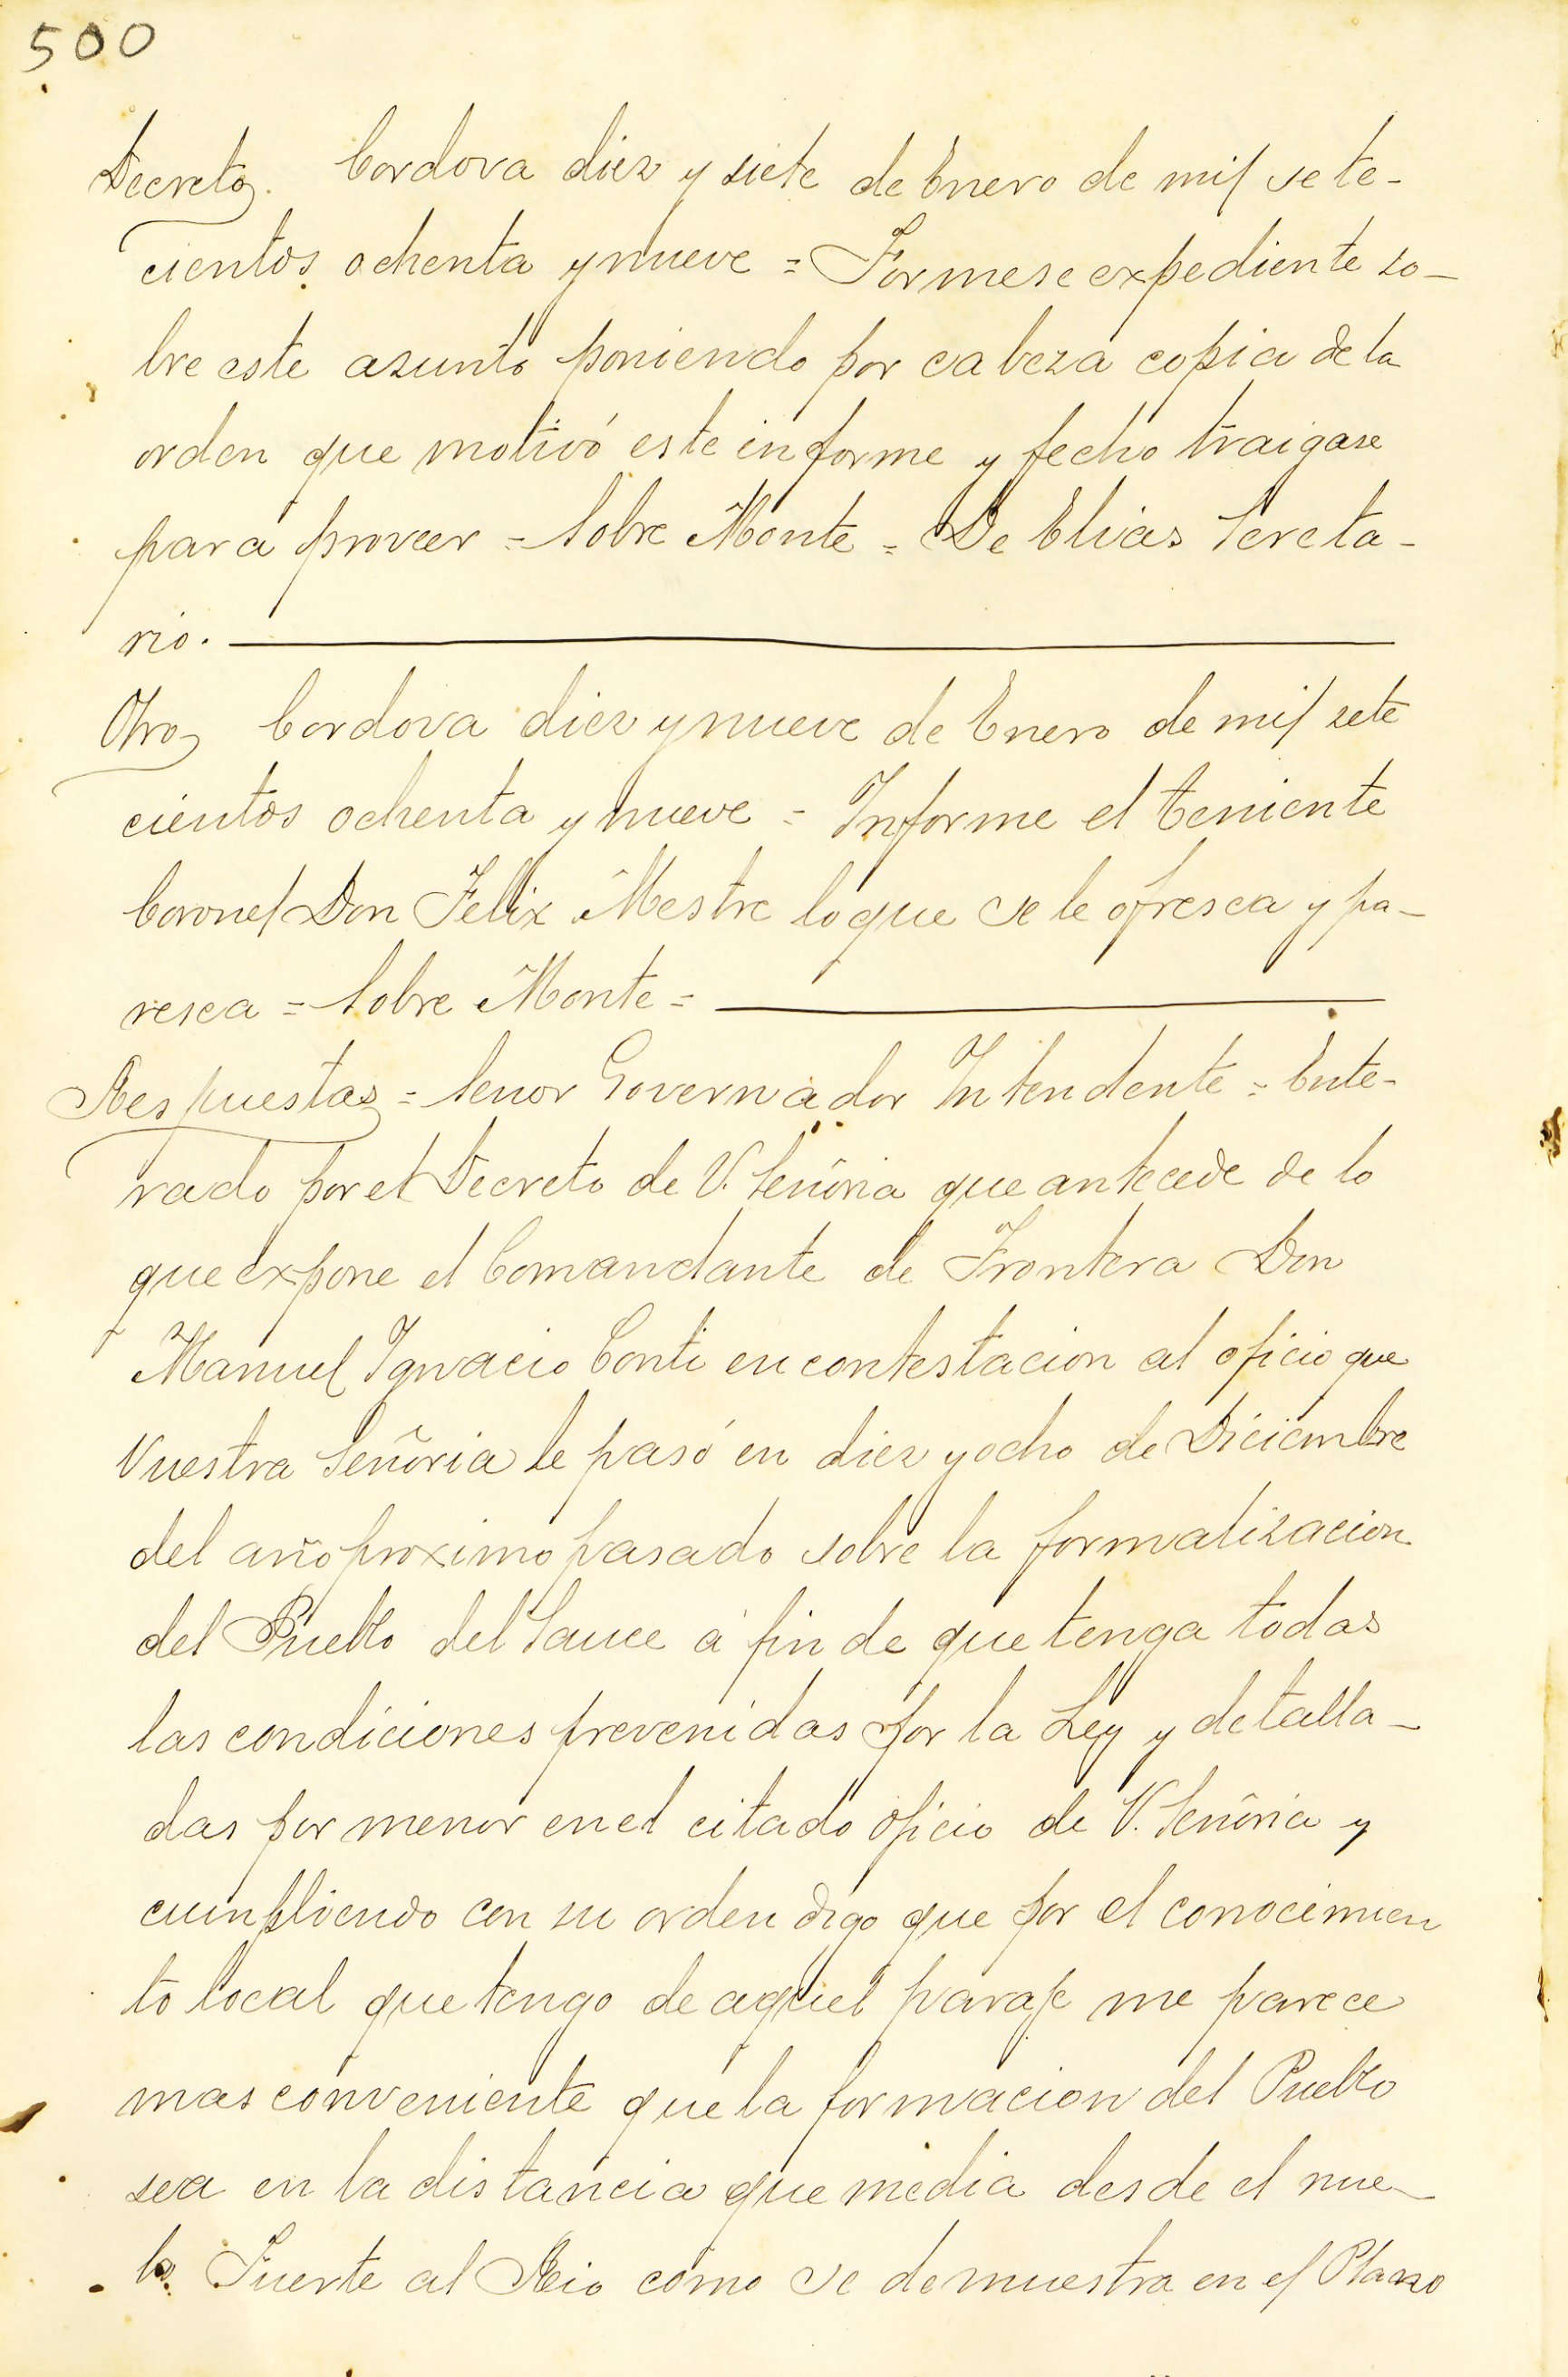 500
Decreto. Cordova diez y siete de Enero de mil sete-
cientos ochenta y nueve = Formese expediente so-
bre este asunto poniendo por cabeza copia de la
orden que motivó este informe y fecho traigase
para proveer = Sobre Monte = De Elias Sereta-
rio.
Otro, Cordova diez y nueve de Enero de mil sete
cientos ochenta y nueve = Informe el Teniente
Coronel Don Felix Mestre lo que se le ofresca y pa-
resca = Sobre Monte =
Respuesta = Senor Governador Intendente = Ente-
rado por el Decreto de V. Señoria que antecede de lo
que expone el Comandante de Frontera Don
Manuel Ignacio Conti en contestacion al oficio que
Vuestra Señoria le pasó en diez y ocho de Diciembre
del año proximo pasado sobre la formalizacion
del Pueblo del Sauce á fin de que tenga todas
las condiciones prevenidas por la Ley y detalla-
das por menor en el citado oficio de V. Señoria y
cumpliendo con su orden digo que por el conocimien
to local que tengo de aquel paraje me parece
mas conveniente que la formacion del Pueblo
sea en la distancia que media desde el nue-
bo Fuerte al Rio como se demuestra en el Plano